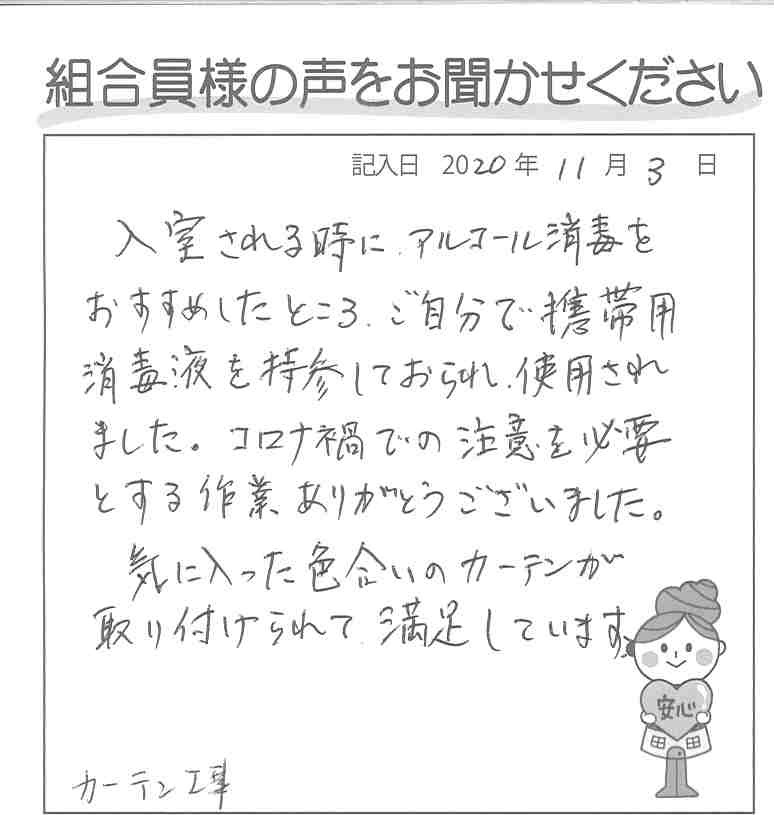 組合員様の声をお聞かせください
記入日 2020年 11月 3日
入室される時に、アルコール消毒を
おすすめしたところ、ご自分で携帯用
消毒液を持参しておられ、使用され
ました。コロナ禍での注意を必要
とする作業ありがとうございました。
気に入った色合いのカーテンが
取り付けられて、満足しています。
安心
カーテン工事